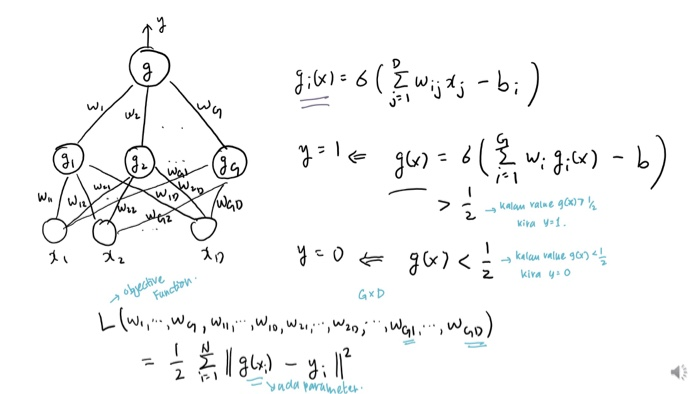 y
g
w₁ w₂ ... w_G
g₁ g₂ ... g_G
w₁₁ w₁₂ w₂₁ w₂₂ w_G1 w_G2 w_1D w_2D w_GD
x₁ x₂ x_D
gᵢ(x) = σ( Σ_{j=1}^{D} w_ij x_j - bᵢ )
y = 1 ⇐ g(x) = σ( Σ_{i=1}^{G} wᵢ gᵢ(x) - b )
> 1/2 → kalau value g(x) > 1/2
kira y=1.
y = 0 ⇐ g(x) < 1/2 → kalau value g(x) < 1/2
kira y=0
→ objective
Function.
G×D
L(w₁, ..., w_G, w₁₁, ..., w_1D, w₂₁, ..., w_2D, ..., w_G1, ..., w_GD)
= 1/2 Σ_{i=1}^{N} ‖ g(xᵢ) - yᵢ ‖²
↘ ada parameter.